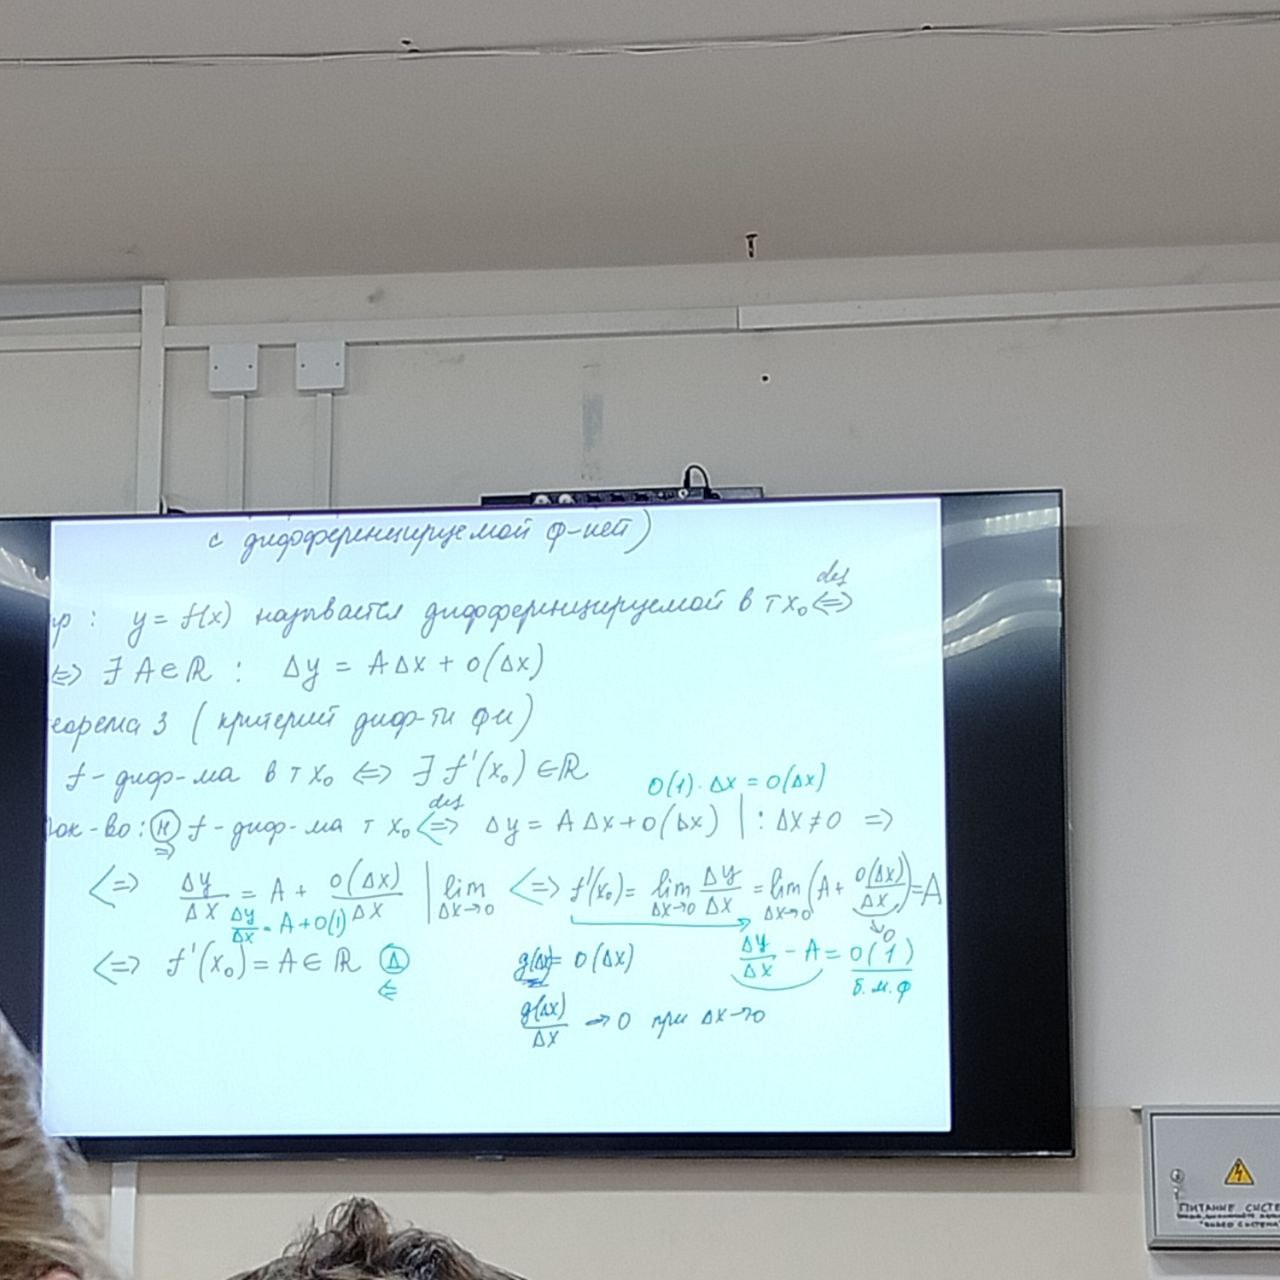 с дифференцируемой ф-цей)
р: y = f(x) называется дифференцируемой в т x₀ <=> def
<=> ∃ A ∈ ℝ : Δy = AΔx + o(Δx)
еорема 3 (критерий диф-ти ф-и)
f - диф-ма в т x₀ <=> ∃ f'(x₀) ∈ ℝ
o(1) · Δx = o(Δx)
док-во: (Н) => f - диф-ма т x₀ <=> def Δy = AΔx + o(Δx) | : Δx ≠ 0 =>
<=> Δy/Δx = A + o(Δx)/Δx | lim Δx→0 <=> f'(x₀) = lim Δx→0 Δy/Δx = lim Δx→0 (A + o(Δx)/Δx) = A
→ 0
Δy/Δx = A + o(1)
<=> f'(x₀) = A ∈ ℝ (Д) <=
g(Δx) = o(Δx)
Δy/Δx - A = o(1)
б.м.ф
g(Δx)/Δx → 0 при Δx → 0
ПИТАНИЕ СИСТЕ